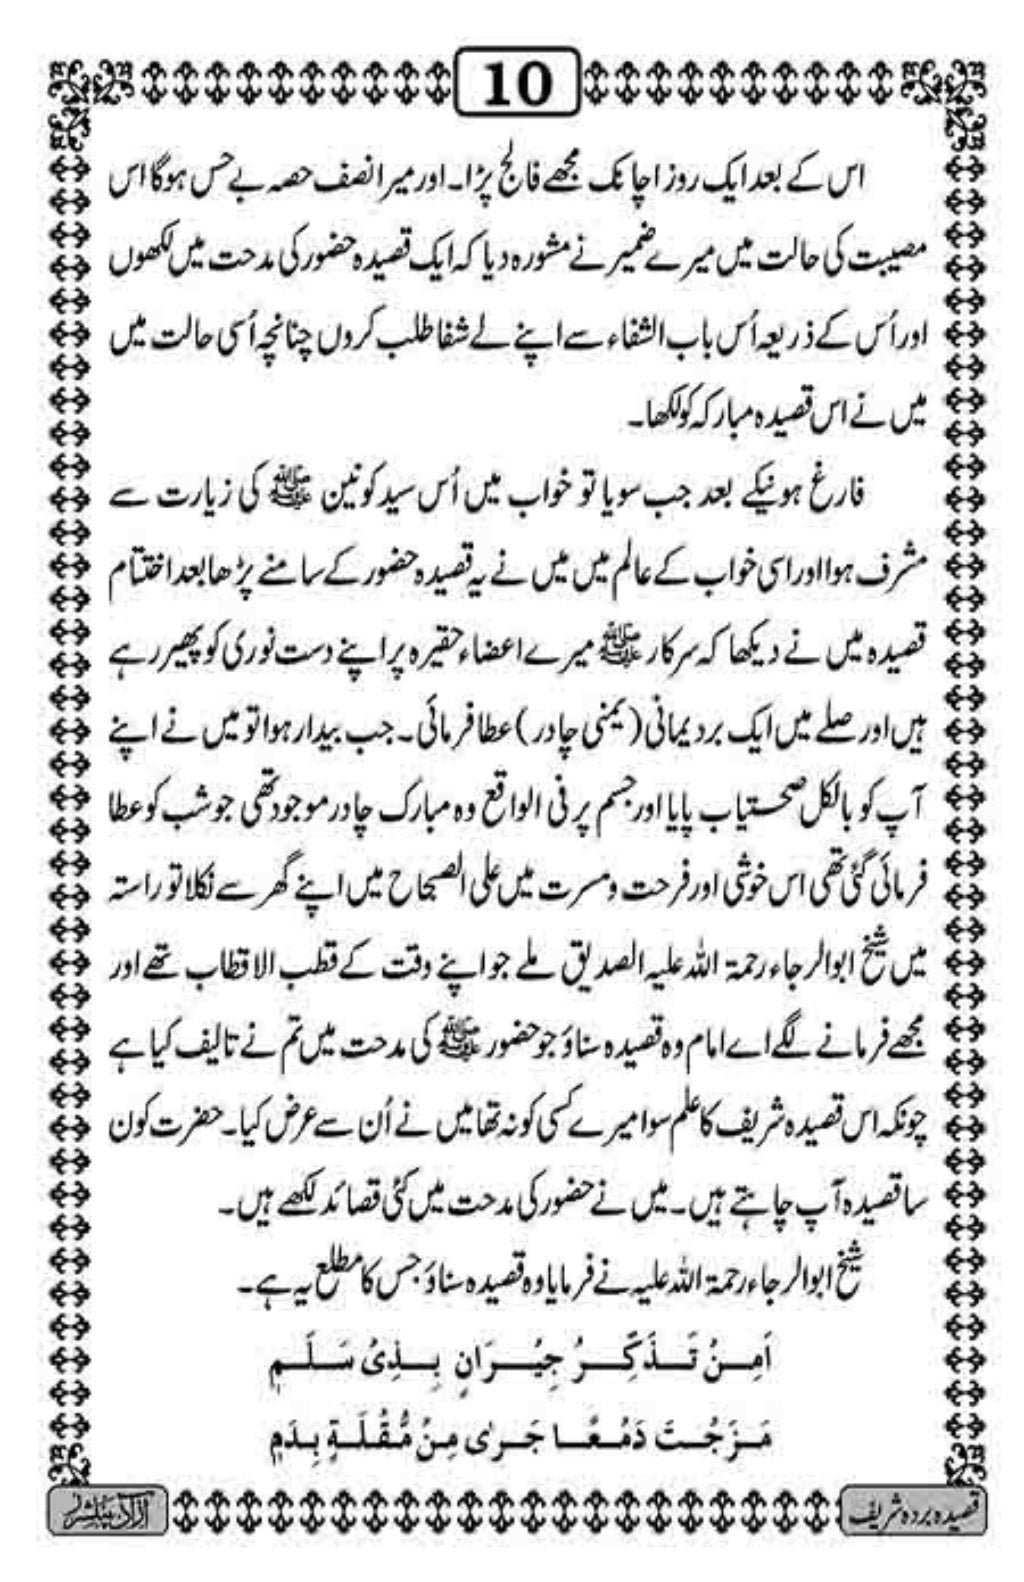 10
اس کے بعد ایک روز اچانک مجھے فالج پڑا۔ اور میرا نصف حصہ بے حس ہوگا اس
مصیبت کی حالت میں میرے ضمیر نے مشورہ دیا کہ ایک قصیدہ حضور کی مدحت میں لکھوں
اور اُس کے ذریعہ اُس باب الشفاء سے اپنے لے شفا طلب کروں چنانچہ اُسی حالت میں
میں نے اس قصیدہ مبارکہ کو لکھا۔
فارغ ہونیکے بعد جب سویا تو خواب میں اُس سید کونین ﷺ کی زیارت سے
مشرف ہوا اور اسی خواب کے عالم میں میں نے یہ قصیدہ حضور کے سامنے پڑھا بعد اختتام
قصیدہ میں نے دیکھا کہ سرکار ﷺ میرے اعضاء حقیرہ پر اپنے دست نوری کو پھیر رہے
ہیں اور صلے میں ایک برد یمانی (یمنی چادر) عطا فرمائی۔ جب بیدار ہوا تو میں نے اپنے
آپ کو بالکل صحستیاب پایا اور جسم پر فی الواقع وہ مبارک چادر موجود تھی جو شب کو عطا
فرمائی گئی تھی اس خوشی اور فرحت و مسرت میں علی الصبحاح میں اپنے گھر سے نکلا تو راستہ
میں شیخ ابوالرجاء رحمۃ اللہ علیہ الصدیق ملے جو اپنے وقت کے قطب الاقطاب تھے اور
مجھے فرمانے لگے اے امام وہ قصیدہ سناؤ جو حضور ﷺ کی مدحت میں تم نے تالیف کیا ہے
چونکہ اس قصیدہ شریف کا علم سوا میرے کسی کو نہ تھا میں نے اُن سے عرض کیا۔ حضرت کون
سا قصیدہ آپ چاہتے ہیں۔ میں نے حضور کی مدحت میں کئی قصائد لکھے ہیں۔
شیخ ابوالرجاء رحمۃ اللہ علیہ نے فرمایا وہ قصیدہ سناؤ جس کا مطلع یہ ہے۔
اَمِنْ تَذَكِّرُ جِيْرَانٍ بِذِيْ سَلَمٖ
مَزَجْتَ دَمْعًا جَرٰى مِنْ مُّقْلَةٍ بِدَمٖ
قصیدہ بردہ شریف
آزاد پبلشرز